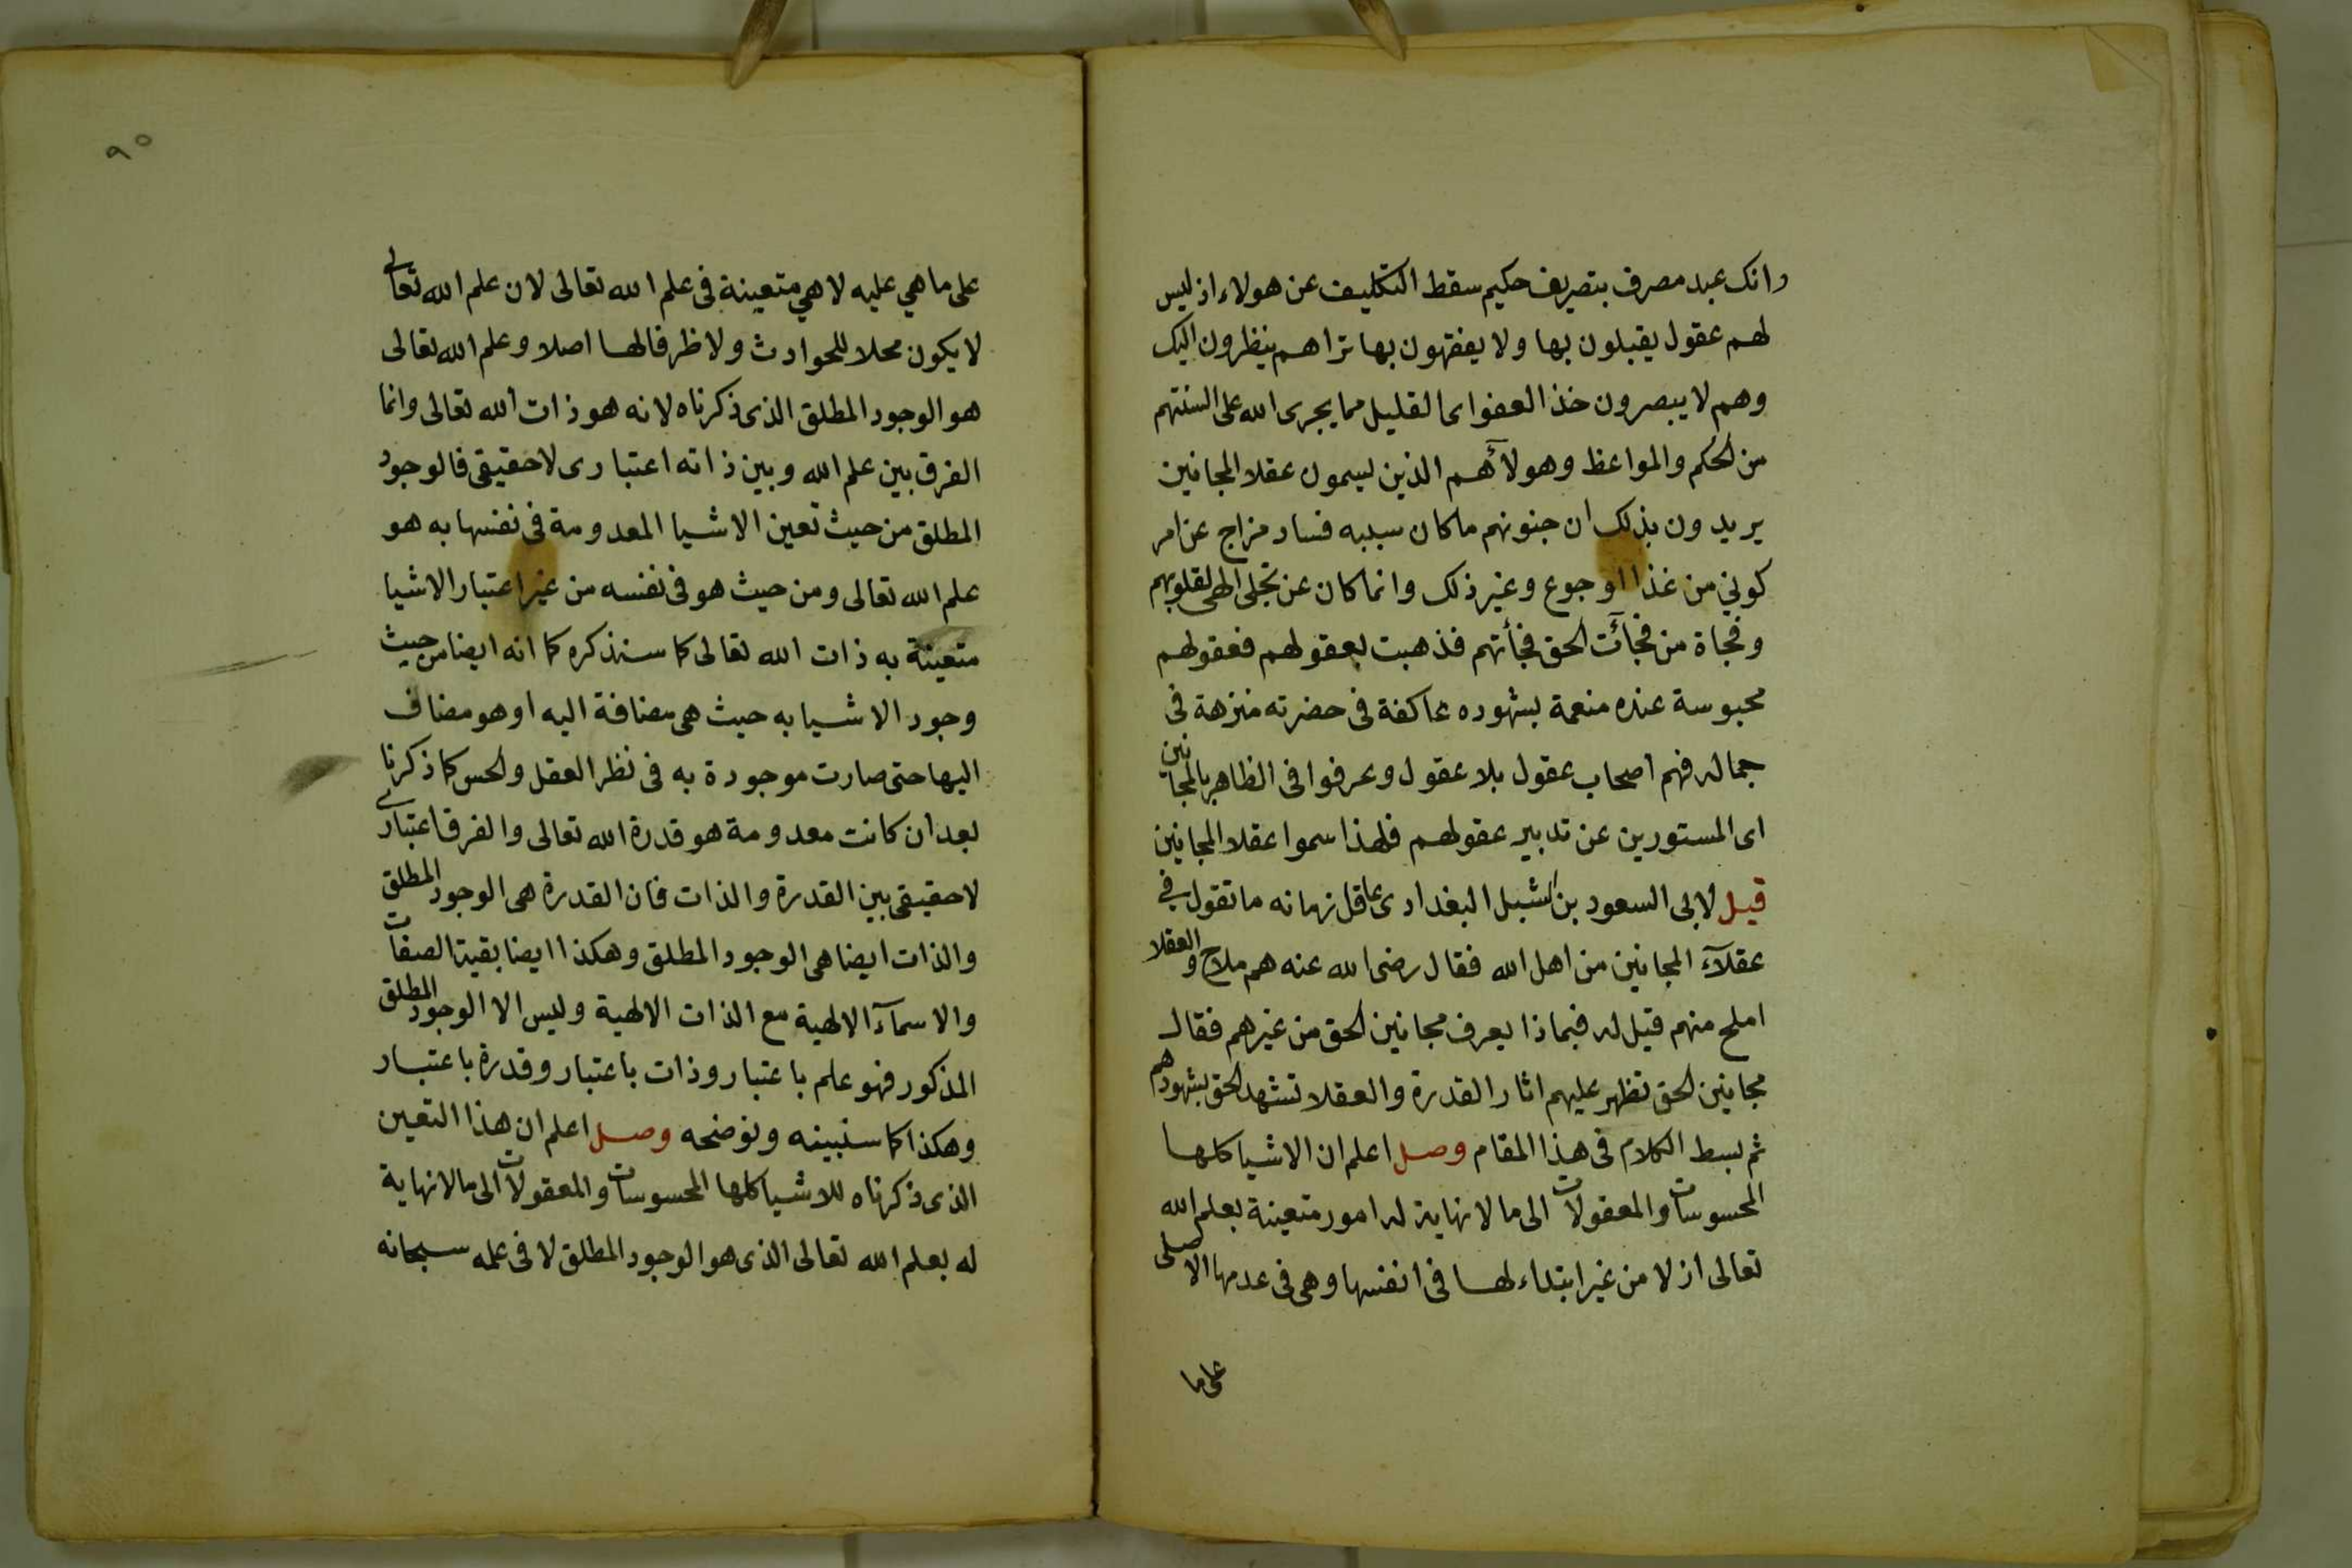 وانك عبد مصرف بتصريف حكيم سقط التكليف عن هولاء اذ ليس
لهم عقول يقبلون بها ولا يفقهون بها تراهم ينظرون اليك
وهم لا يبصرون خذ العفو اى القليل مما يجرى الله على السنتهم
من الحكم والمواعظ وهولآء هم الذين يسمون عقلا المجانين
يريدون بذلك ان جنونهم ما كان سببه فساد مزاج عن امر
كوني من غذا او جوع وغير ذلك وانما كان عن تجلى الهى لقلوبهم
وفجاة من فجآت الحق فجأتهم فذهبت بعقولهم فعقولهم
محبوسة عنده منعمة بشهوده عاكفة فى حضرته منزهة فى
جماله فهم اصحاب عقول بلا عقول وعرفوا فى الظاهر بالمجانين
اى المستورين عن تدبير عقولهم فلهذا سموا عقلا المجانين
قيل لابى السعود بن الشبل البغدادى عاقل زمانه ما تقول في
عقلآء المجانين من اهل الله فقال رضى الله عنه هم ملاح والعقلا
املح منهم قيل له فبماذا يعرف مجانين الحق من غيرهم فقال
مجانين الحق تظهر عليهم اثار القدرة والعقلا تشهد الحق بشهودهم
ثم بسط الكلام فى هذا المقام وصل اعلم ان الاشيا كلها
المحسوسات والمعقولات الى ما لا نهاية له امور متعينة بعلم الله
تعالى ازلا من غير ابتداء لها فى انفسها وهى فى عدمها الاصلى
على ما
٩٥
على ما هي عليه لا هي متعينة فى علم الله تعالى لان علم الله تعالى
لا يكون محلا للحوادث ولا ظرفا لها اصلا وعلم الله تعالى
هو الوجود المطلق الذى ذكرناه لانه هو ذات الله تعالى وانما
الفرق بين علم الله وبين ذاته اعتبارى لا حقيقى فالوجود
المطلق من حيث تعين الاشيا المعدومة فى نفسها به هو
علم الله تعالى ومن حيث هو فى نفسه من غير اعتبار الاشيا
متعينة به ذات الله تعالى كما سنذكره كما انه ايضا من حيث
وجود الاشيا به حيث هى مضافة اليه او هو مضاف
اليها حتى صارت موجودة به فى نظر العقل والحس كما ذكرنا
بعد ان كانت معدومة هو قدرة الله تعالى والفرق اعتبارى
لا حقيقى بين القدرة والذات فان القدرة هى الوجود المطلق
والذات ايضا هى الوجود المطلق وهكذا ايضا بقية الصفات
والاسمآء الالهية مع الذات الالهية وليس الا الوجود المطلق
المذكور فهو علم باعتبار وذات باعتبار وقدرة باعتبار
وهكذا كما سنبينه ونوضحه وصل اعلم ان هذا التعين
الذى ذكرناه للاشيا كلها المحسوسات والمعقولات الى ما لا نهاية
له بعلم الله تعالى الذى هو الوجود المطلق لا فى علمه سبحانه